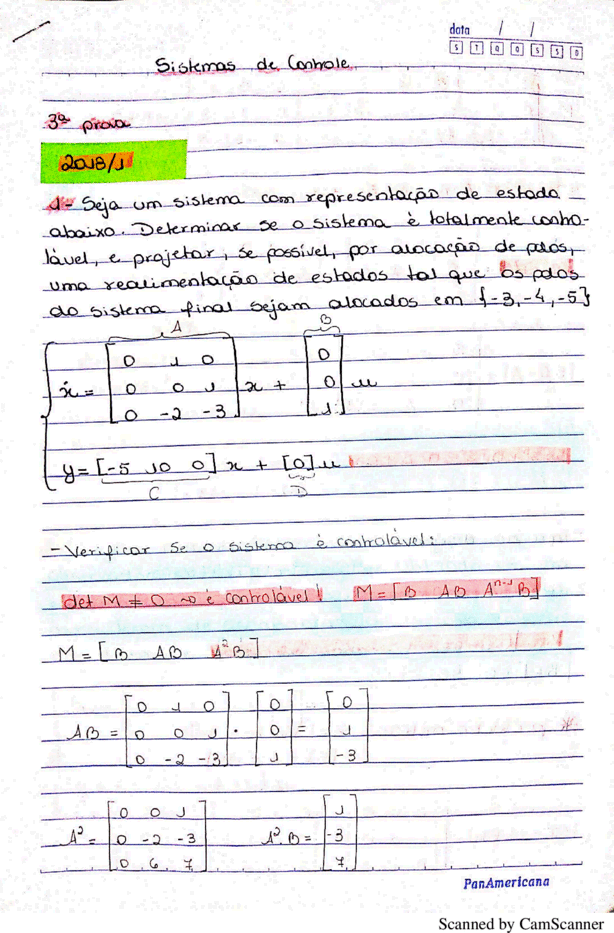 data / /
S T Q Q S S D
Sistemas de Controle
3ª prova
2018/1
1- Seja um sistema com representação de estado
abaixo. Determinar se o sistema é totalmente contro-
lável, e projetar, se possível, por alocação de polos,
uma realimentação de estados tal que os polos
do sistema final sejam alocados em {-3, -4, -5}
A B
ẋ = [0 1 0; 0 0 1; 0 -2 -3] x + [0; 0; 1] u
y = [-5 10 0] x + [0] u
C D
- Verificar se o sistema é controlável:
det M ≠ 0 ~> é controlável! M = [B AB A^{n-1}B]
M = [B AB A²B]
AB = [0 1 0; 0 0 1; 0 -2 -3] · [0; 0; 1] = [0; 1; -3] *
A² = [0 0 1; 0 -2 -3; 0 6 7] A².B = [1; -3; 7]
PanAmericana
Scanned by CamScanner